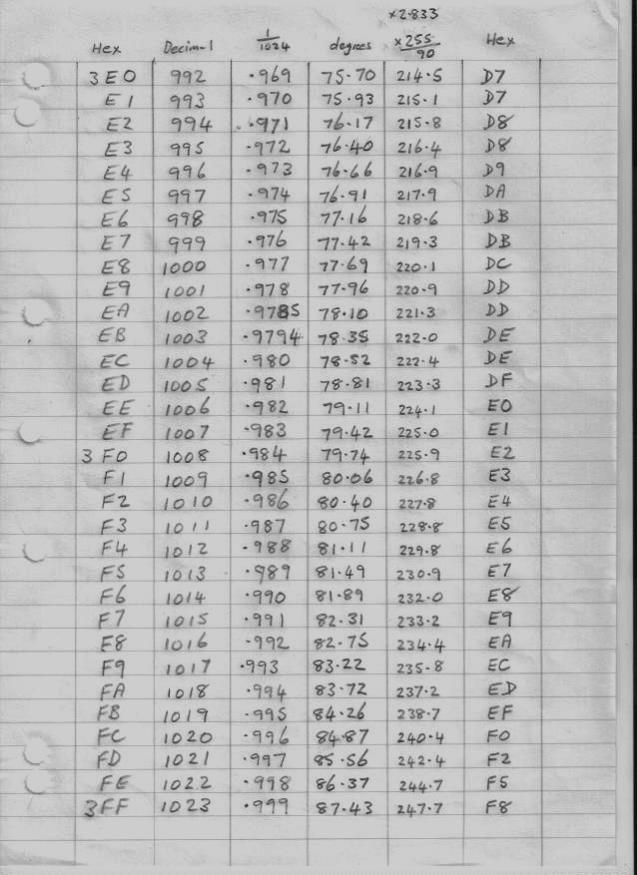 ×2.833
Hex Decimal 1/1024 degrees ×255/90 Hex
3E0 992 .969 75.70 214.5 D7
E1 993 .970 75.93 215.1 D7
E2 994 .971 76.17 215.8 D8
E3 995 .972 76.40 216.4 D8
E4 996 .973 76.66 216.9 D9
E5 997 .974 76.91 217.9 DA
E6 998 .975 77.16 218.6 DB
E7 999 .976 77.42 219.3 DB
E8 1000 .977 77.69 220.1 DC
E9 1001 .978 77.96 220.9 DD
EA 1002 .9785 78.10 221.3 DD
EB 1003 .9794 78.35 222.0 DE
EC 1004 .980 78.52 222.4 DE
ED 1005 .981 78.81 223.3 DF
EE 1006 .982 79.11 224.1 E0
EF 1007 .983 79.42 225.0 E1
3F0 1008 .984 79.74 225.9 E2
F1 1009 .985 80.06 226.8 E3
F2 1010 .986 80.40 227.8 E4
F3 1011 .987 80.75 228.8 E5
F4 1012 .988 81.11 229.8 E6
F5 1013 .989 81.49 230.9 E7
F6 1014 .990 81.89 232.0 E8
F7 1015 .991 82.31 233.2 E9
F8 1016 .992 82.75 234.4 EA
F9 1017 .993 83.22 235.8 EC
FA 1018 .994 83.72 237.2 ED
FB 1019 .995 84.26 238.7 EF
FC 1020 .996 84.87 240.4 F0
FD 1021 .997 85.56 242.4 F2
FE 1022 .998 86.37 244.7 F5
3FF 1023 .999 87.43 247.7 F8